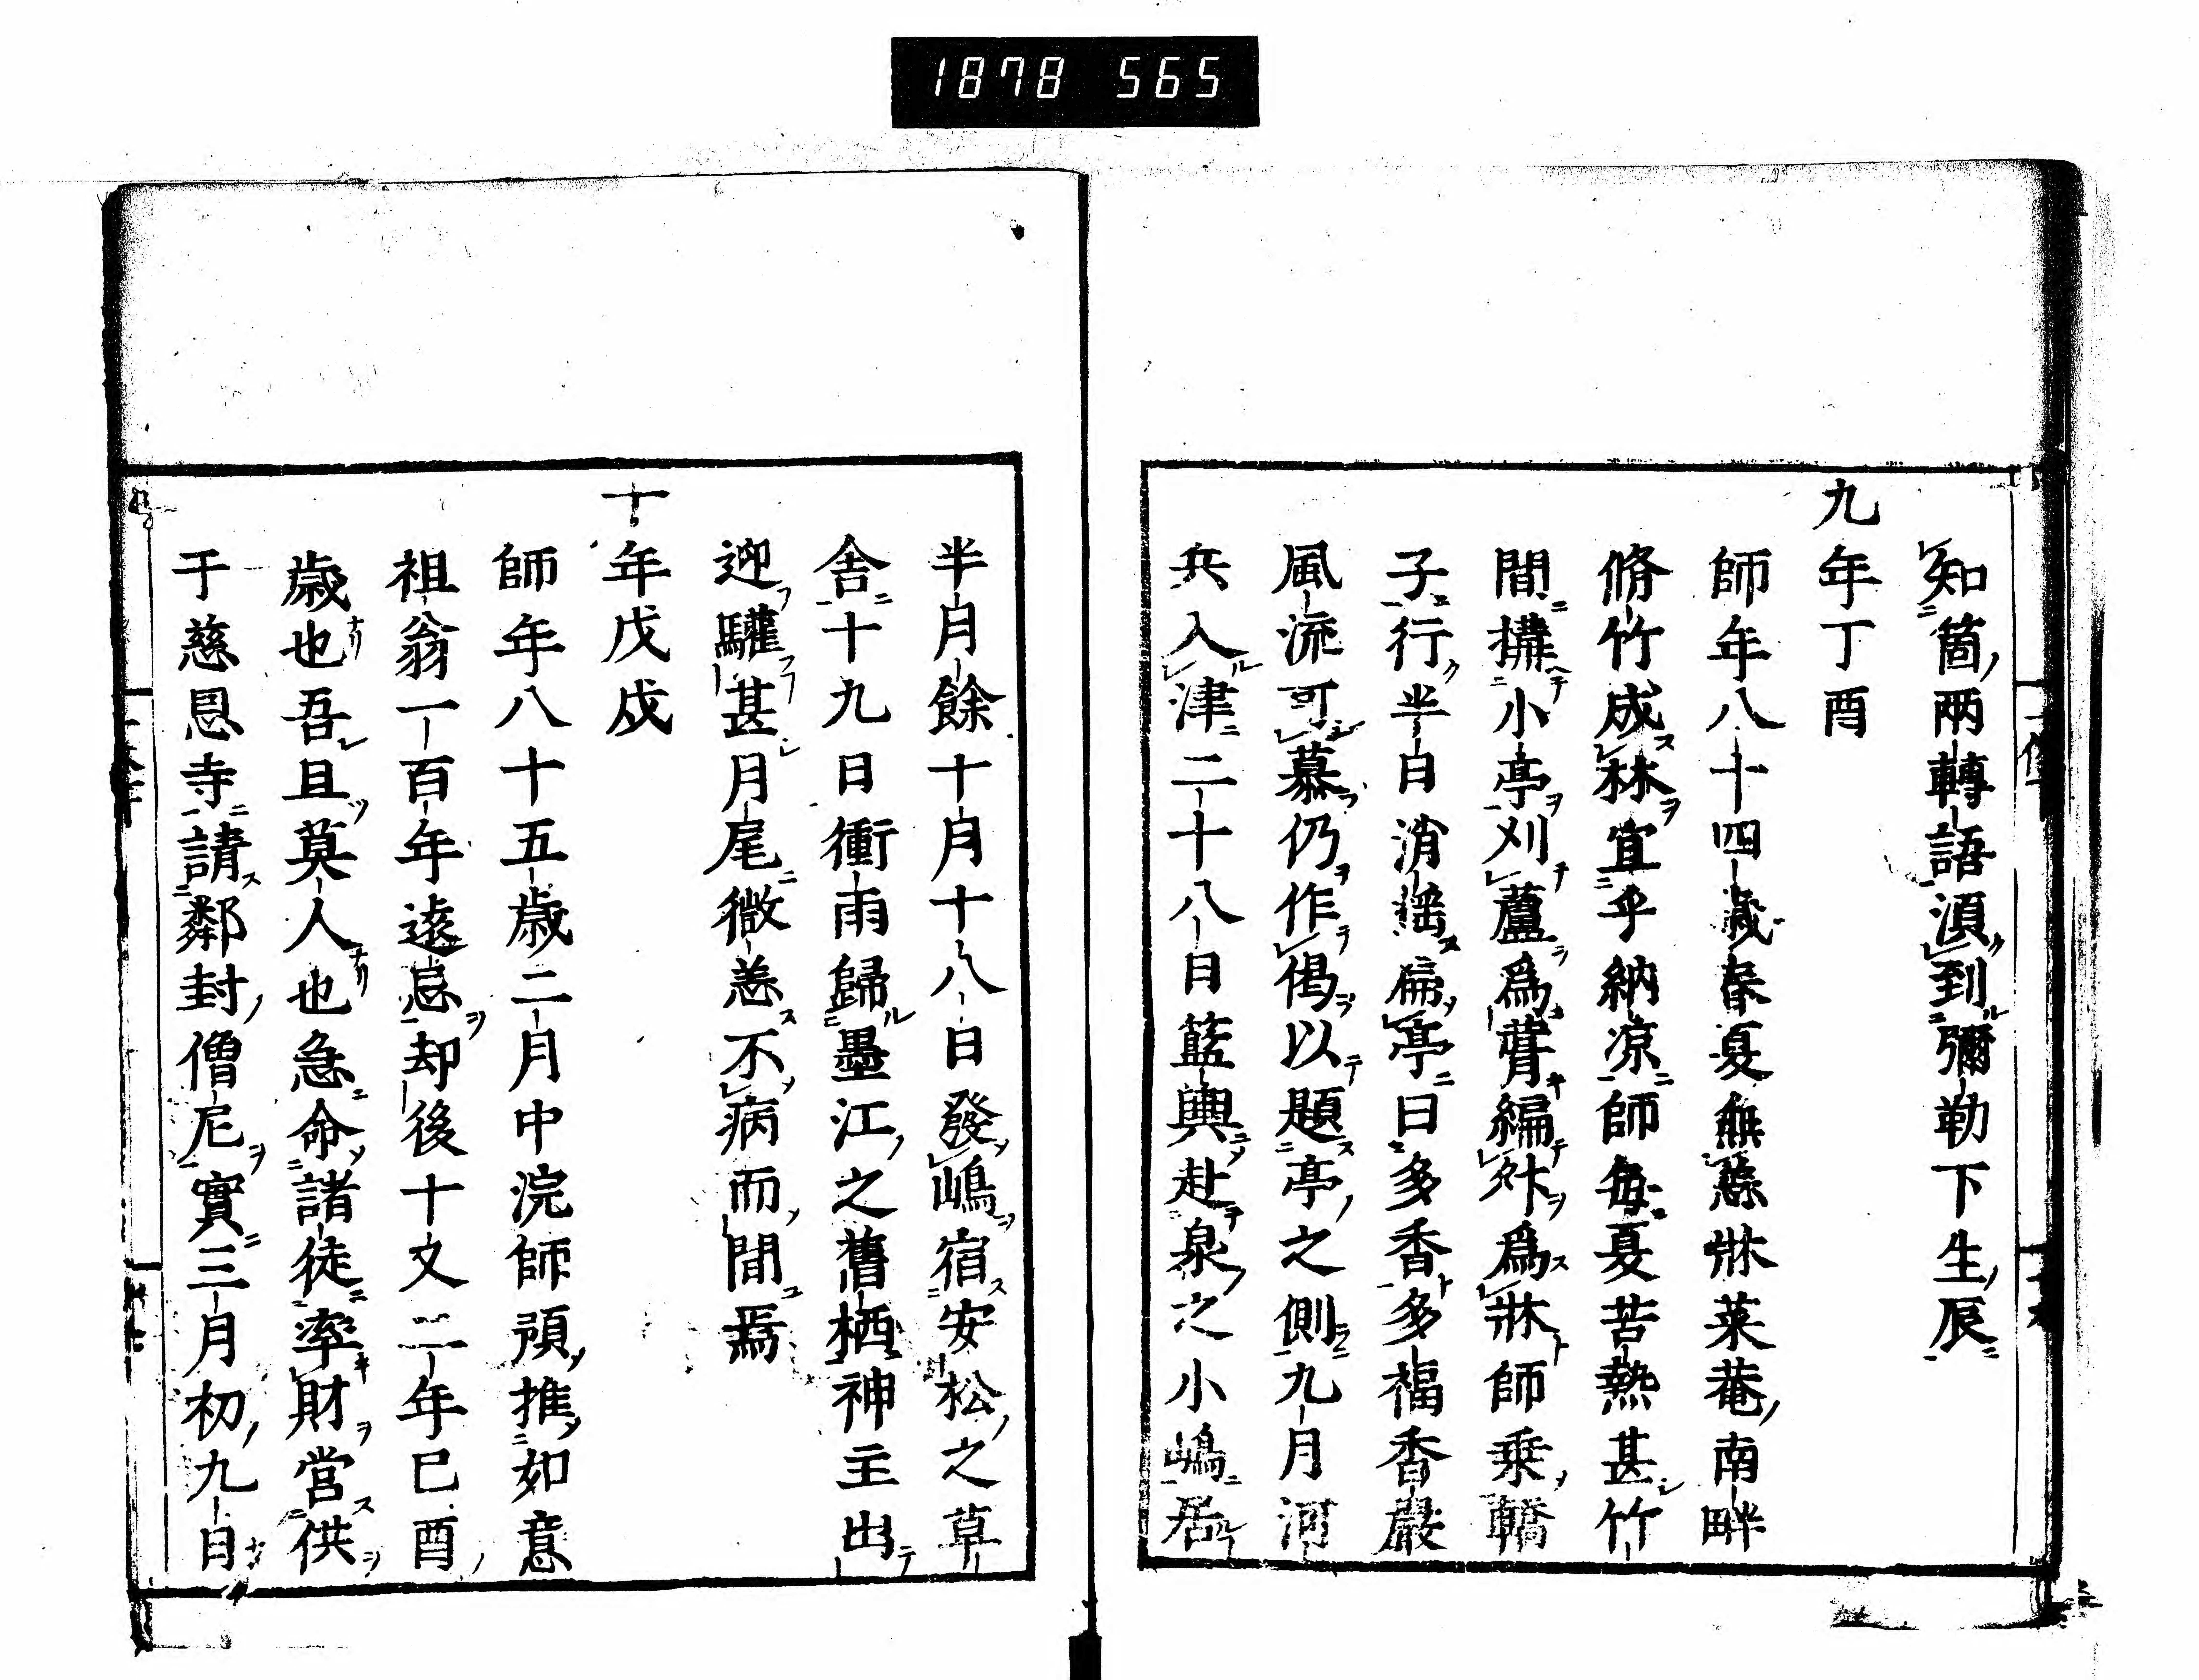 1878 565
知箇兩轉語湏到彌勒下生辰
九年丁酉
師年八十四歳春夏無恙牀菜菴南畔
脩竹成林宜乎納凉師每夏苦熱甚竹
間搆小亭刈蘆爲甍編竹爲牀師乗轎
子行半日消揺扁亭曰多香多福香嚴
風流可慕仍作偈以題亭之側九月河
兵入津二十八日籃輿赴泉之小嶋居
半月餘十月十八日發嶋宿安松之草
舎十九日衝雨歸墨江之舊栖神主出
迎驩甚月尾微恙不病而間焉
十年戊戌
師年八十五歳二月中浣師預推如意
祖翁一百年遠忌却後十又二年已酉
歳也吾且莫人也急命諸徒率財営供
于慈恩寺請鄰封僧尼實三月初九日